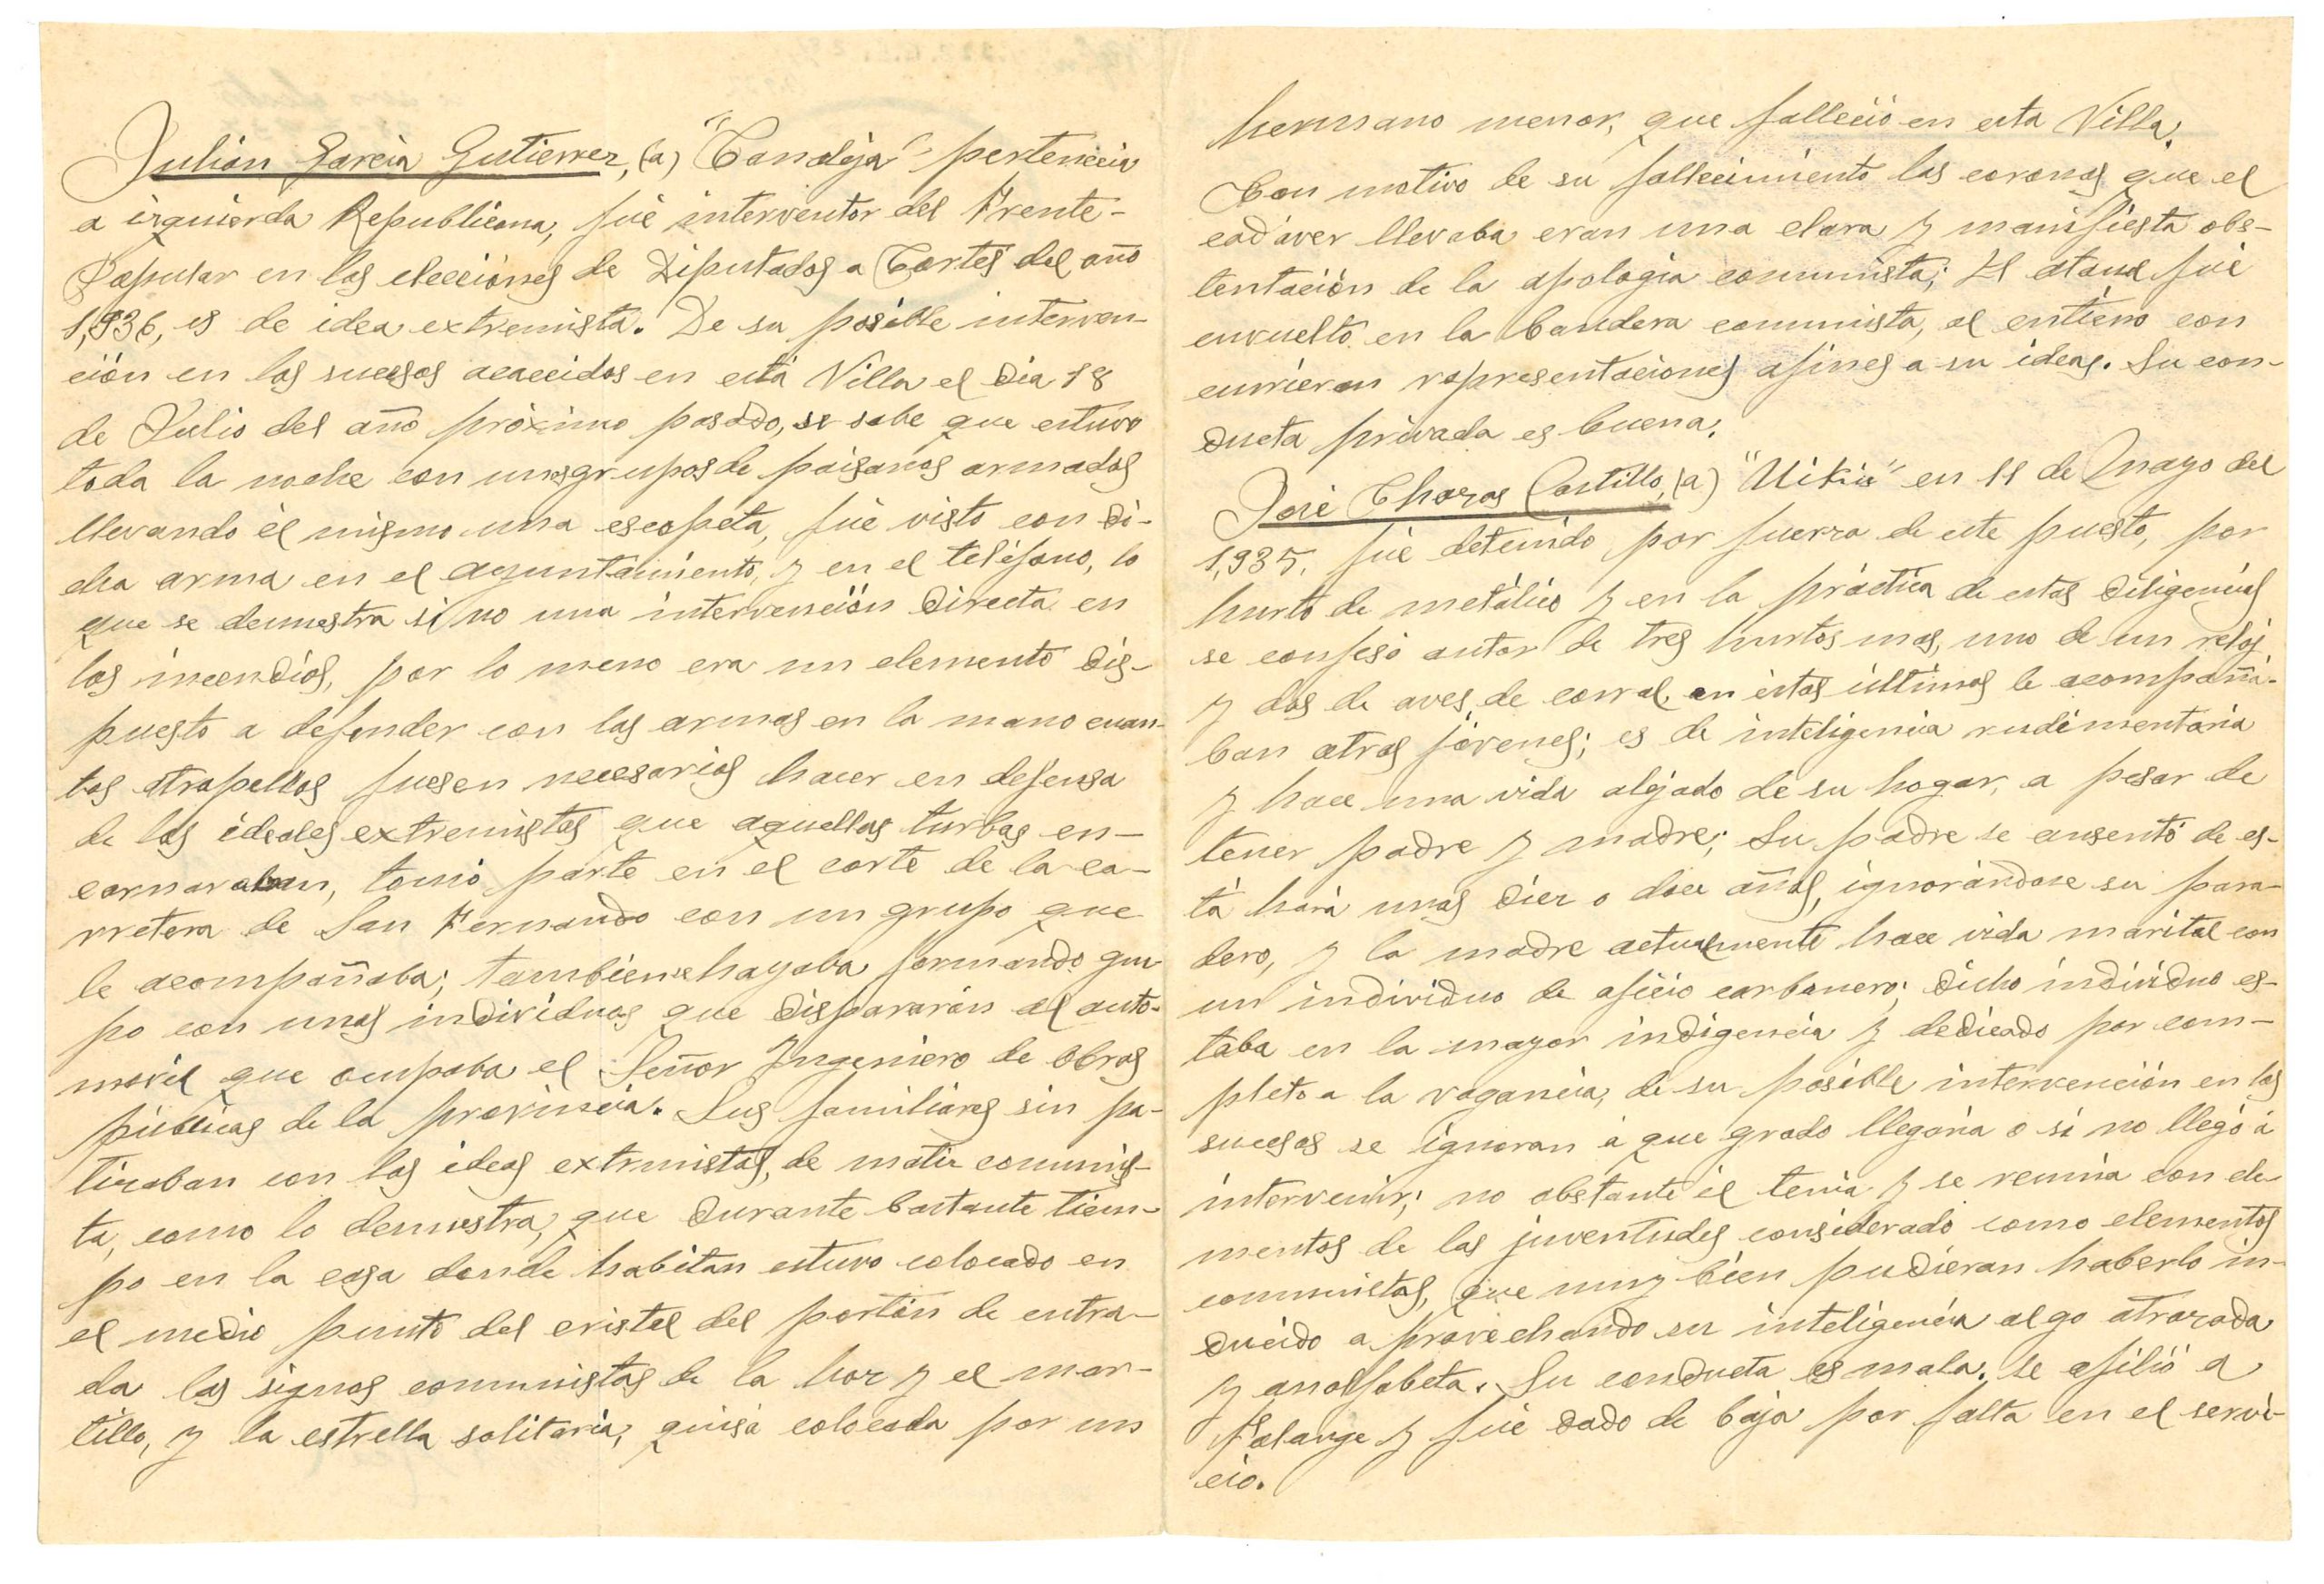 Julián García Gutierrez, (a) "Candeja" pertenecia
a izquierda Republicana, fué interventor del Frente-
Popular en las elecciones de Diputados a Cortes del año
1,936, es de idea extremista. De su posible interven-
ción en los sucesos acaecidos en esta Villa el dia 18
de Julio del año próximo pasado, se sabe que estuvo
toda la noche con unos grupos de paisanos armados
llevando él mismo una escopeta, fué visto con di-
cha arma en el ayuntamiento, y en el teléfono, lo
que se demuestra si no una intervención directa en
los incendios, por lo meno era un elemento dis-
puesto a defender con las armas en la mano cuan-
tos atropellos fuesen necesarios hacer en defensa
de los ideales extremistas que aquellas turbas en-
carnaraban, tomó parte en el corte de la ca-
rretera de San Fernando con un grupo que
le acompañaba; tambien se hayaba formando gru-
po con unos individuos que dispararán al auto-
movil que ocupaba el Señor Ingeniero de Obras
públicas de la provincia. Sus familiares sin pa-
tizaban con las ideas extremistas, de matiz comunis-
ta, como lo demuestra, que durante bastante tiem-
po en la casa donde habitan estuvo colocado en
el medio punto del cristal del portón de entra-
da los signos comunistas de la hoz y el mar-
tillo, y la estrella solitaria, quisá colocada por un
hermano menor, que falleció en esta Villa.
Con motivo de su fallecimiento las coronas que el
cadáver llevaba eran una clara y manifiesta obs-
tentación de la apologia comunista; El ataud fué
envuelto en la bandera comunista, al entierro con
currieron representaciones afines a su ideas. Su con-
ducta privada es buena.
José Chozas Castillo, (a) "Mikis" en 11 de Mayo del
1,935, fué detenido por fuerza de este puesto, por
hurto de metálico y en la práctica de estas diligencias
se confesó autor de tres hurtos mas, uno de un reloj
y dos de aves de corral, en éstos últimos le acompaña-
ban otros jóvenes; es de inteligencia rudimentaria
y hace una vida alejado de su hogar, a pesar de
tener padre y madre; Su padre se ausentó de es-
ta hará unos diez o doce años, ignorándose su para-
dero, y la madre actualmente hace vida marital con
un individuo de oficio carbonero; dicho individuo es-
taba en la mayor indigencia y dedicado por com-
pleto a la vagancia, de su posible intervención en los
sucesos se ignoran á que grado llegaria o si no llegó á
intervenir; no obstante él tenia y se reunia con ele-
mentos de las juventudes considerado como elementos
comunistas, que muy bien pudieran haberlo in-
ducido a provechando su inteligencia algo atrazada
y analfabeta. Su conducta es mala. se afilió a
Falange y fué dado de baja por falta en el servi-
cio.